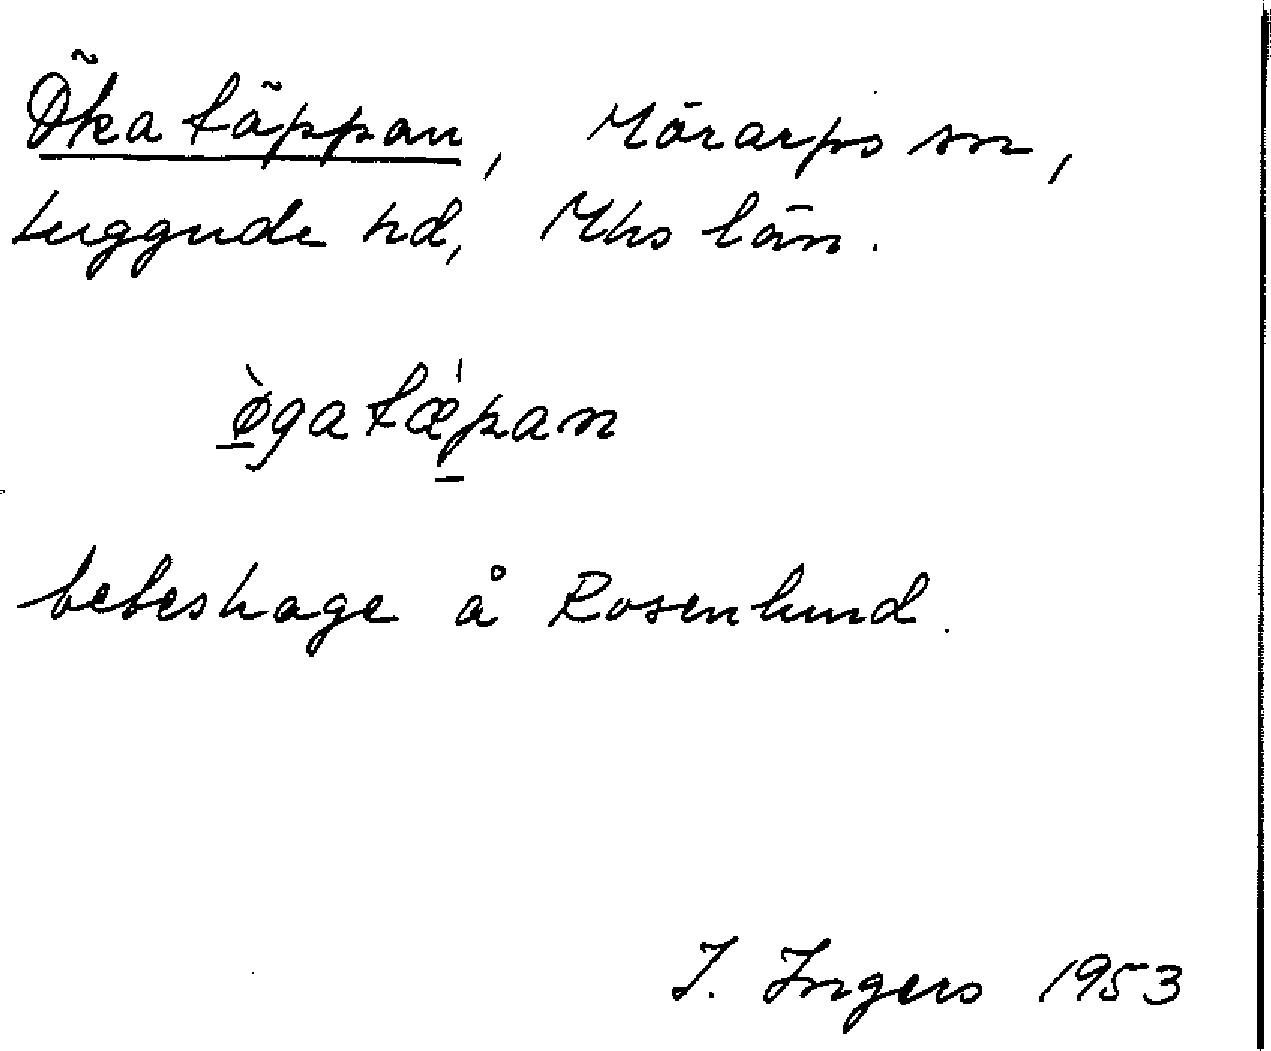 Ökatäppan, Mörarps sn,
Luggude hd, Mhs län.
ø̀gatæ̍pan
beteshage å Rosenlund.
I. Ingers 1953